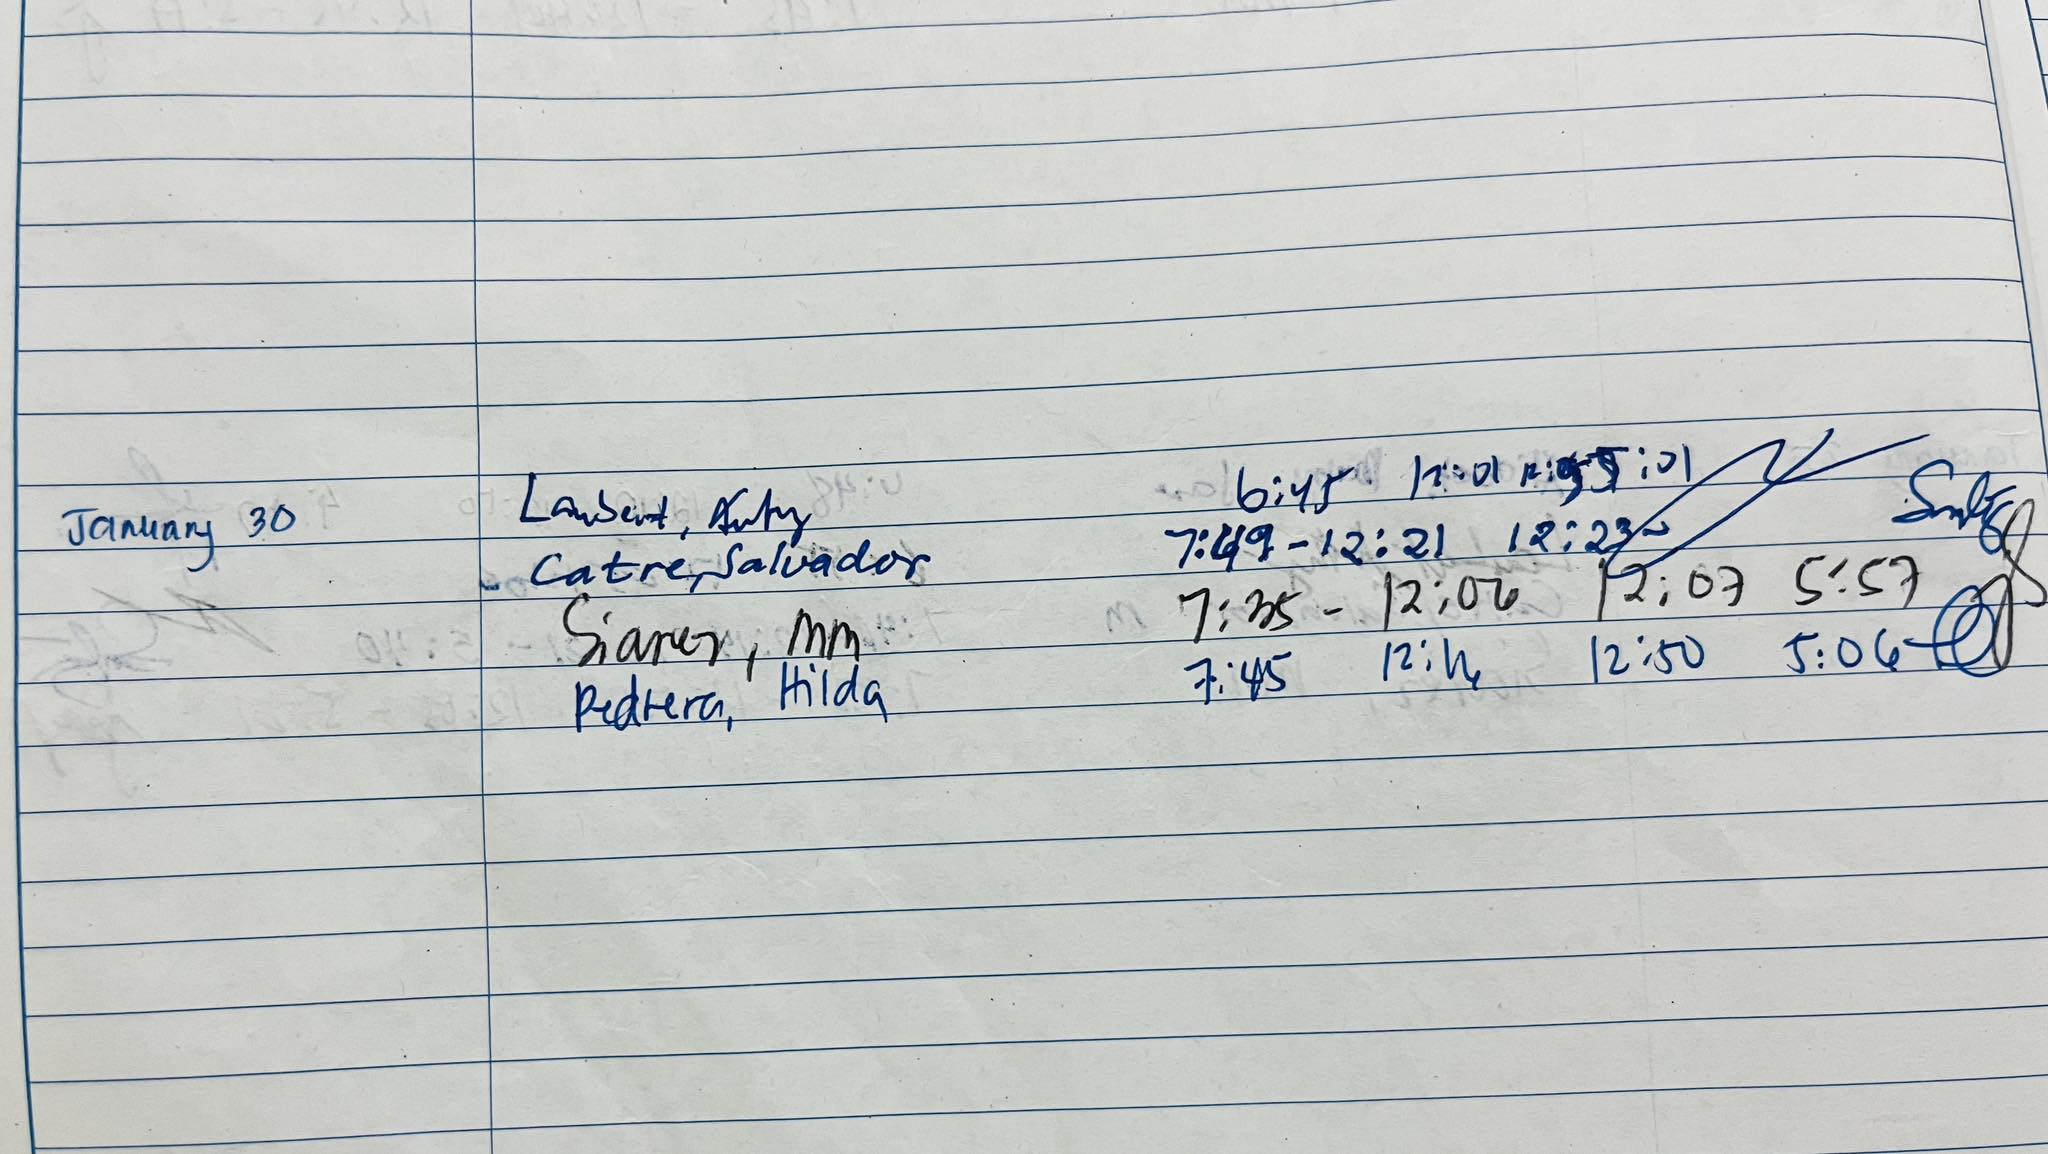 January 30 Lambert, 6:45 12:01 5:01
Catre, Salvador 7:49 - 12:21 12:23 -
Siarer, MM 7:35 - 12:06 12:07 5:57
Pedrera, Hilda 7:45 12:16 12:50 5:06